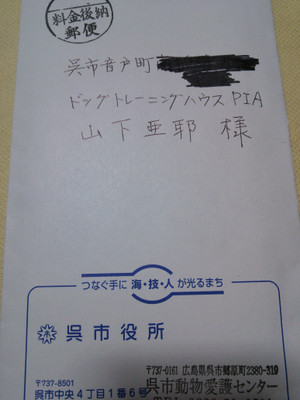 料金後納
郵便
呉市音戸町
ドッグトレーニングハウスPIA
山下亜耶 様
つなぐ手に 海・技・人 が光るまち
呉市役所
〒737-0161 広島県呉市郷原町2380-319
呉市動物愛護センター
〒737-8501
呉市中央4丁目1番6号